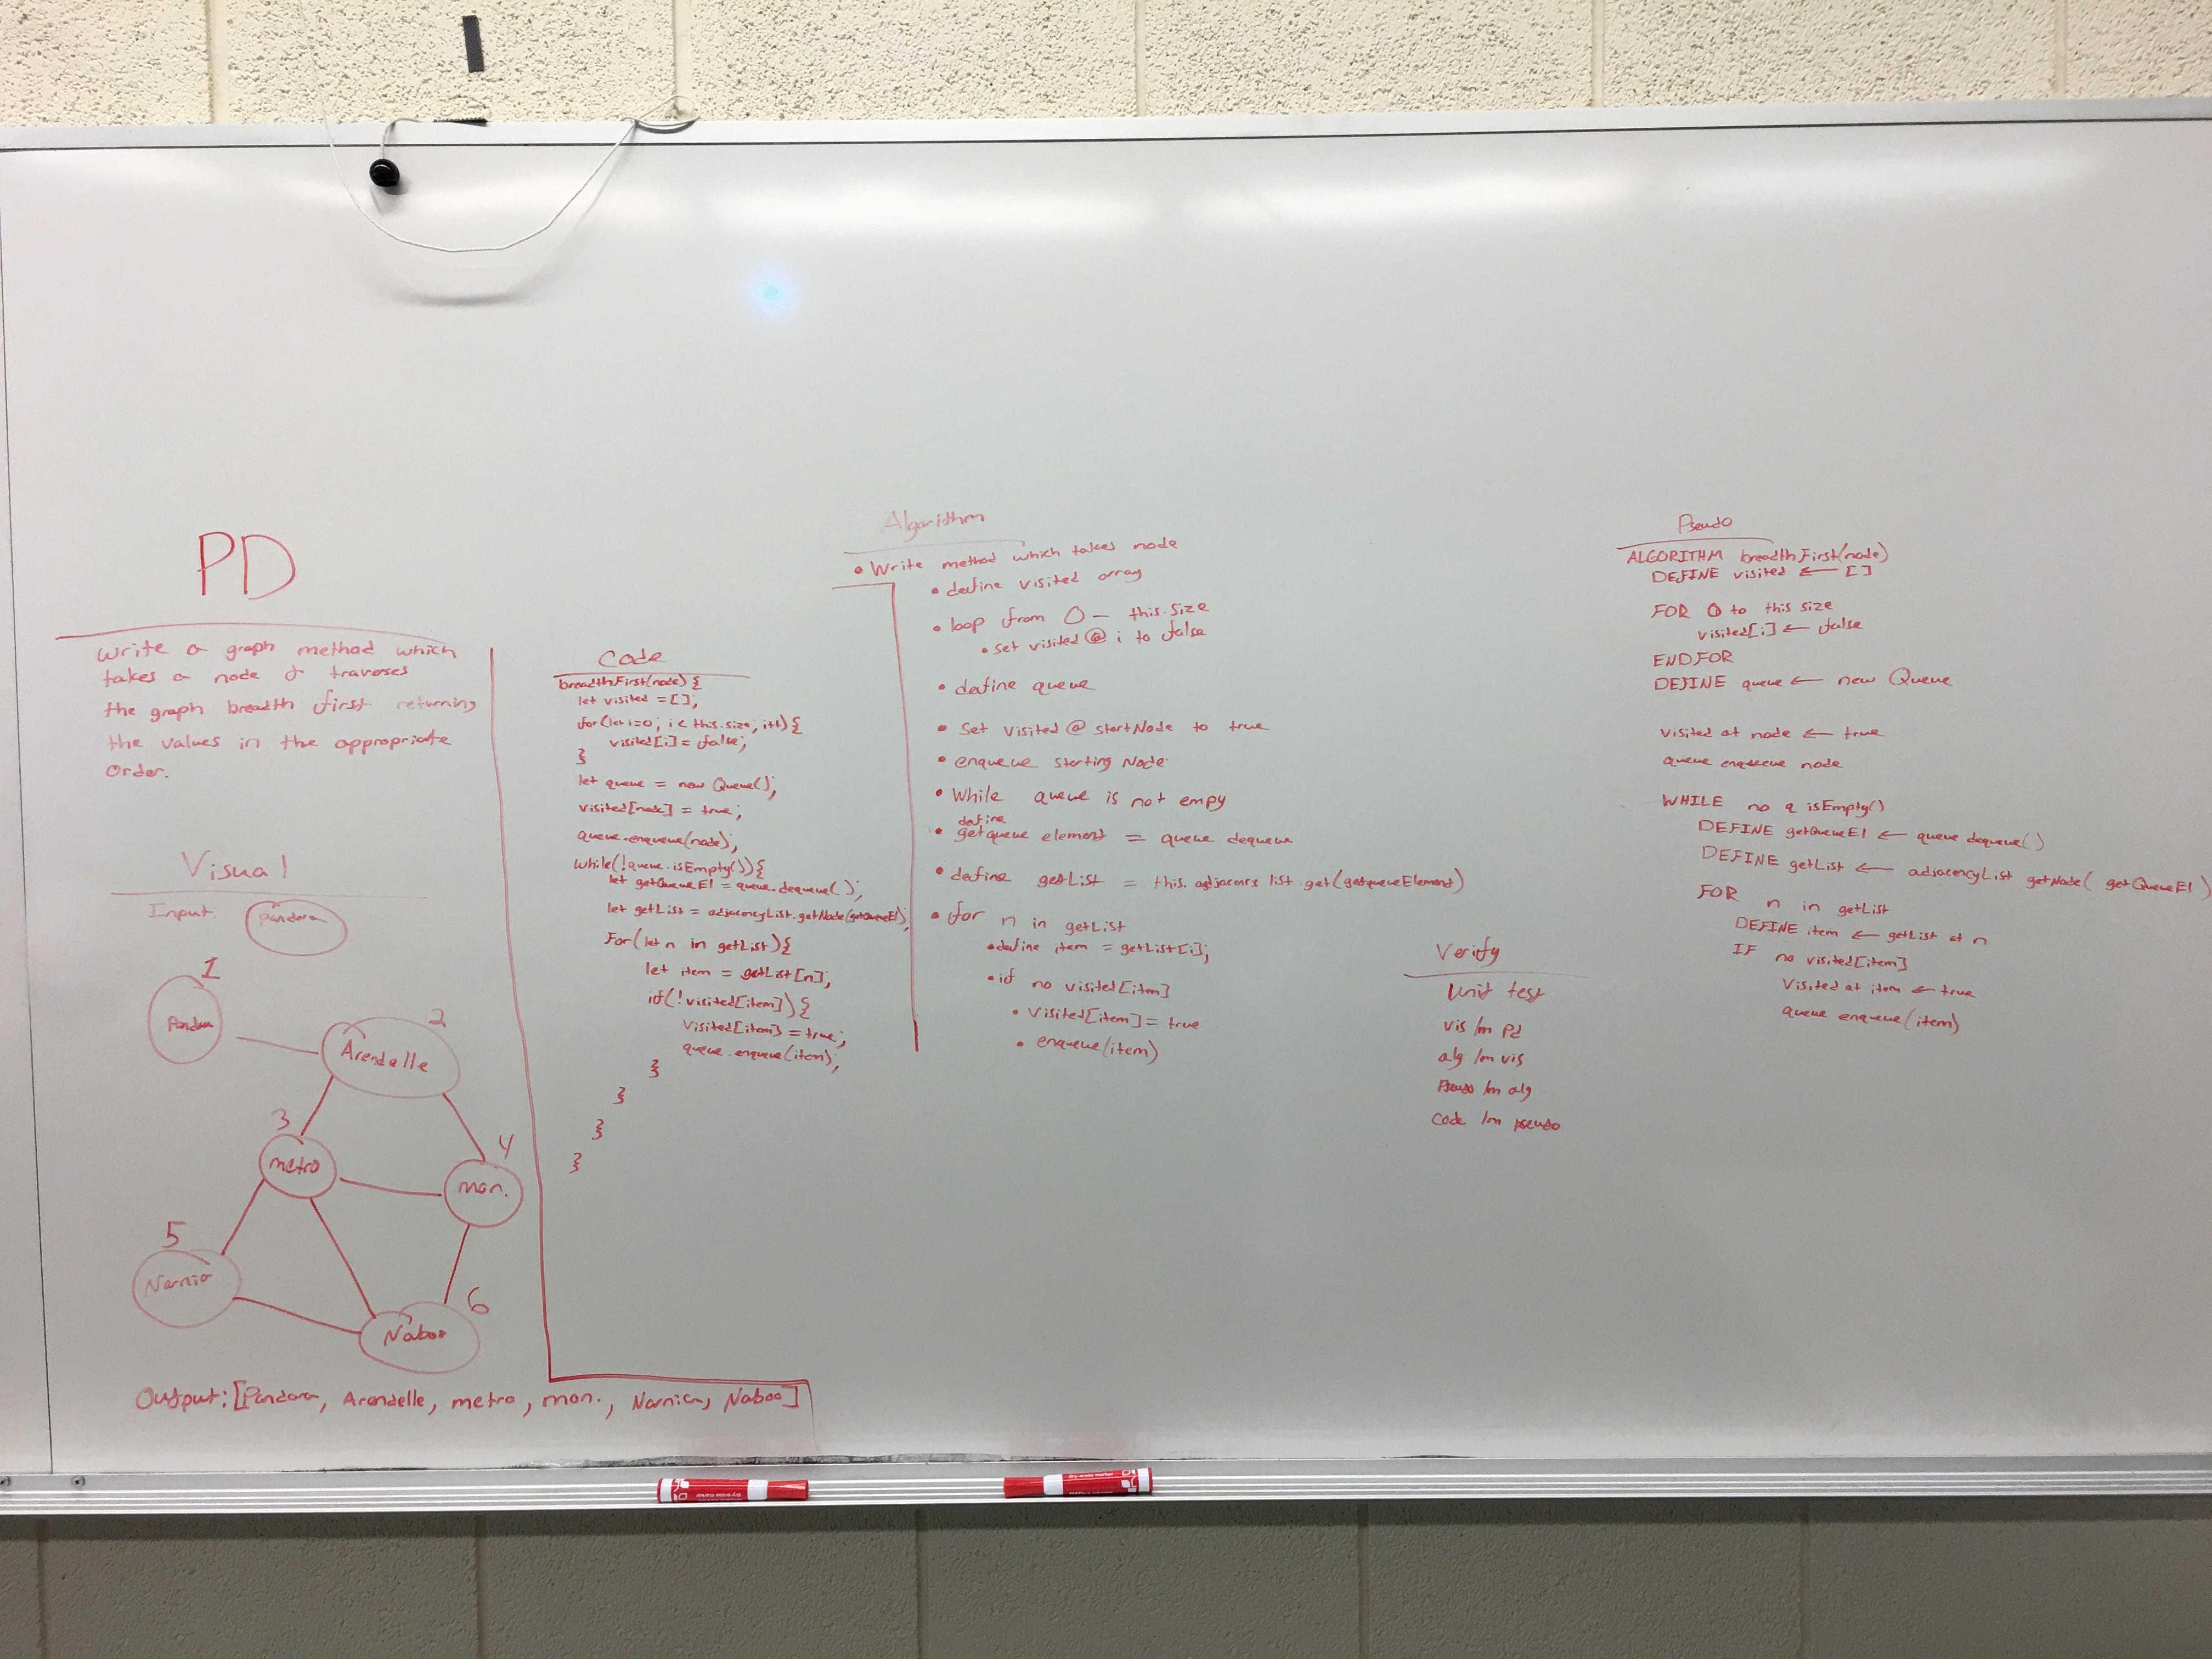 PD
Write a graph method which
takes a node & traverses
the graph breadth first returning
the values in the appropriate
Order.
Visual
Input
Pandora
1
Pandora
2
Arendelle
3
metro
4
mon.
5
Narnia
6
Naboo
Output: [Pandora, Arendelle, metro, mon., Narnia, Naboo]
Code
breadthFirst(node) {
let visited = [];
for(let i=0; i < this.size; i++) {
visited[i] = false;
}
let queue = new Queue();
visited[node] = true;
queue.enqueue(node);
while(!queue.isEmpty()) {
let getQueueEl = queue.dequeue();
let getList = adjacencyList.getNode(getQueueEl);
For(let n in getList) {
let item = getList[n];
if(!visited[item]) {
visited[item] = true;
queue.enqueue(item);
}
}
}
}
Algorithm
• Write method which takes node
• define visited array
• loop from 0 - this.size
• set visited @ i to false
• define queue
• Set visited @ startNode to true
• enqueue starting Node
• While queue is not empy
define
• getqueue element = queue dequeue
• define getList = this. list.get(getqueueElement)
• for n in getList
• define item = getList[i];
• if no visited[item]
• visited[item] = true
• enqueue(item)
Verify
Unit test
vis /m pd
alg /m vis
Pseudo /m alg
Code /m pseudo
Pseudo
ALGORITHM breadthFirst(node)
DEFINE visited ← []
FOR 0 to this size
visited[i] ← false
ENDFOR
DEFINE queue ← new Queue
visited at node ← true
queue enqueue node
WHILE no q isEmpty()
DEFINE getQueueEl ← queue dequeue()
DEFINE getList ← adjacencyList getNode( getQueueEl )
FOR n in getList
DEFINE item ← getList at n
IF no visited[item]
Visited at item ← true
queue enqueue(item)
dry-erase marker
dry-erase marker